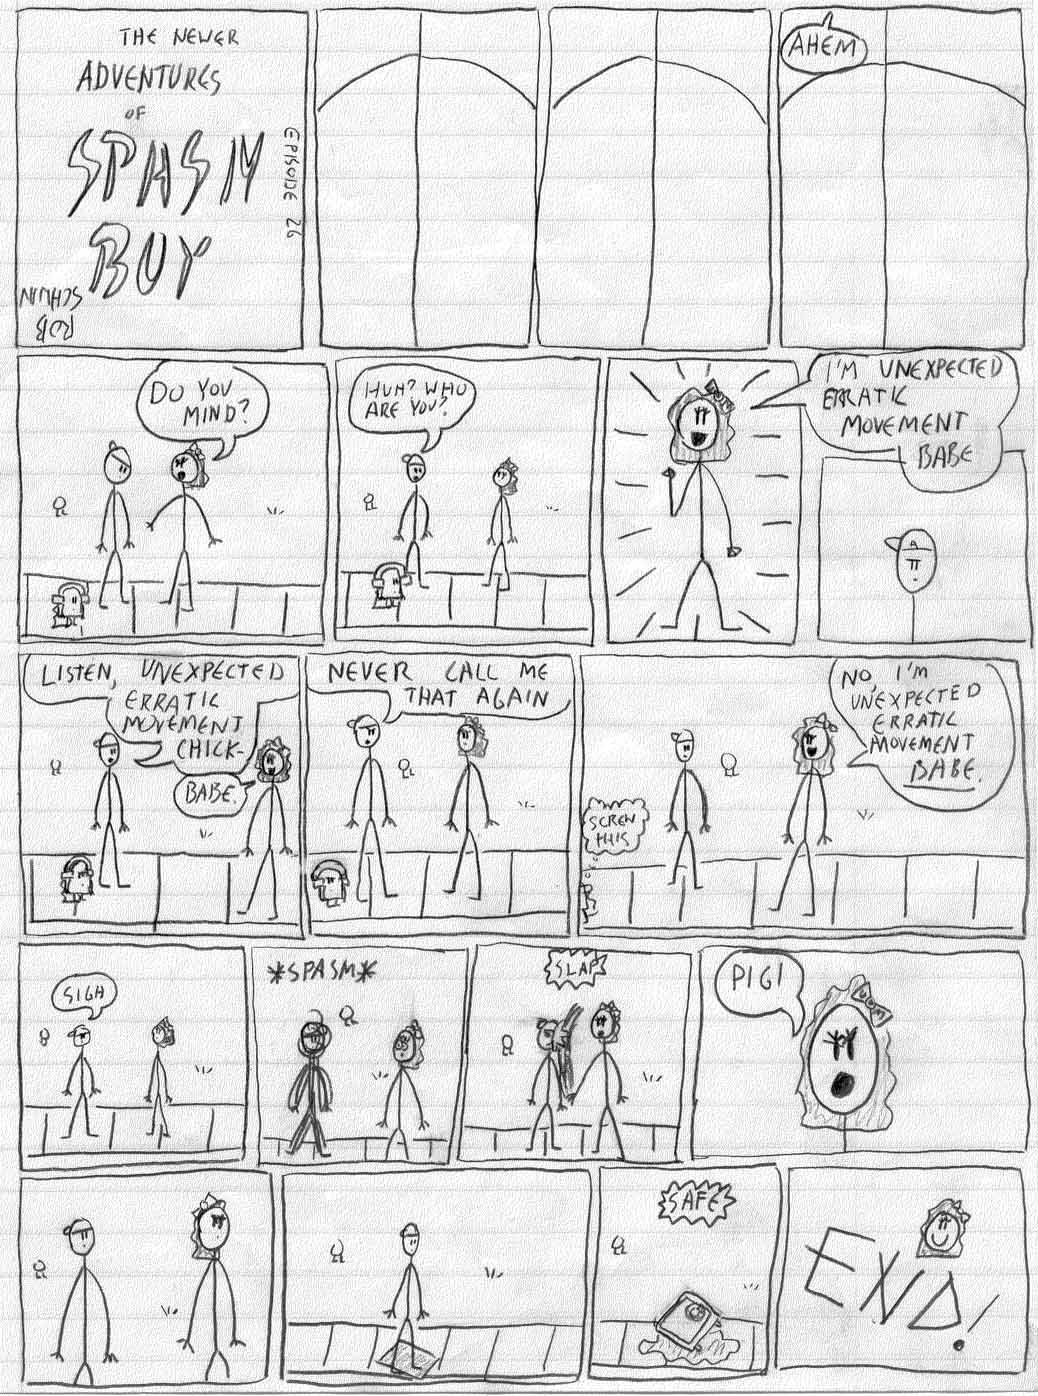 THE NEWER
ADVENTURES
OF
SPASM
BOY
EPISODE 26
ROB
SCHWIN
AHEM
DO YOU
MIND?
HUH? WHO
ARE YOU?
I'M UNEXPECTED
ERRATIC
MOVEMENT
BABE
LISTEN, UNEXPECTED
ERRATIC
MOVEMENT
CHICK-
BABE.
NEVER CALL ME
THAT AGAIN
NO, I'M
UNEXPECTED
ERRATIC
MOVEMENT
BABE.
SCREW
THIS
SIGH
*SPASM*
SLAP
PIG!
SAFE
END!